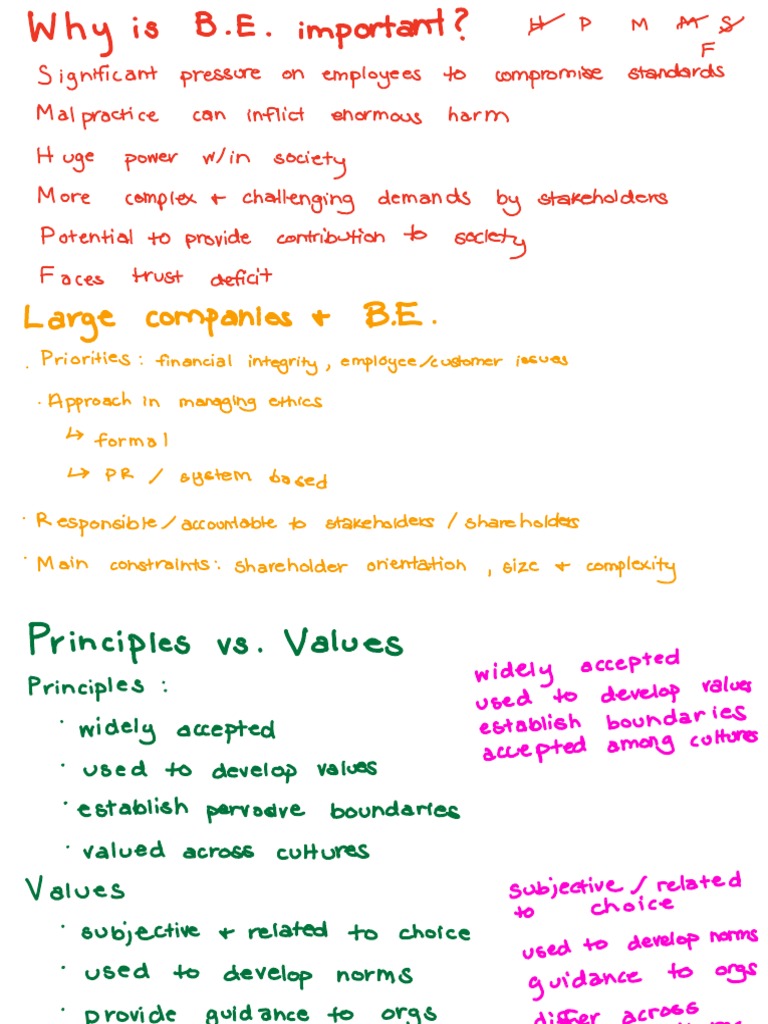 Why is B.E. important? H P M M S
F
Significant pressure on employees to compromise standards
Malpractice can inflict enormous harm
Huge power w/in society
More complex + challenging demands by stakeholders
Potential to provide contribution to society
Faces trust deficit
Large companies + B.E.
· Priorities: financial integrity, employee/customer issues
· Approach in managing ethics
↳ formal
↳ PR / system based
· Responsible/accountable to stakeholders / shareholders
· Main constraints: shareholder orientation, size + complexity
Principles vs. Values
Principles:
· widely accepted
· used to develop values
· establish pervasive boundaries
· valued across cultures
widely accepted
used to develop values
establish boundaries
accepted among cultures
Values
· subjective + related to choice
· used to develop norms
· provide guidance to orgs
subjective / related
to choice
used to develop norms
guidance to orgs
differ across